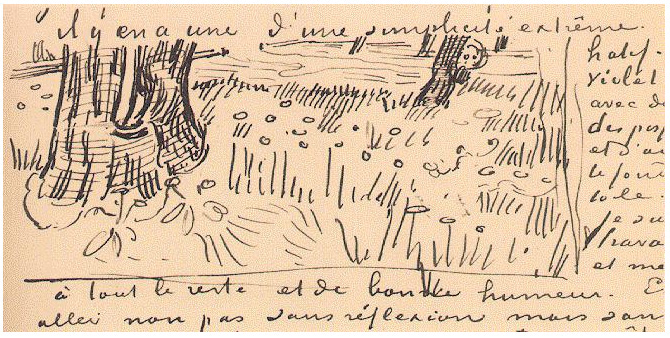 il y en a une d'une simplicité extrême.
halef-
violet
avec d
des pas
et d'au
le
toile
Je su
trava
et me
à tout le reste et de bonne humeur. E
aller non pas sans réflexion mais san